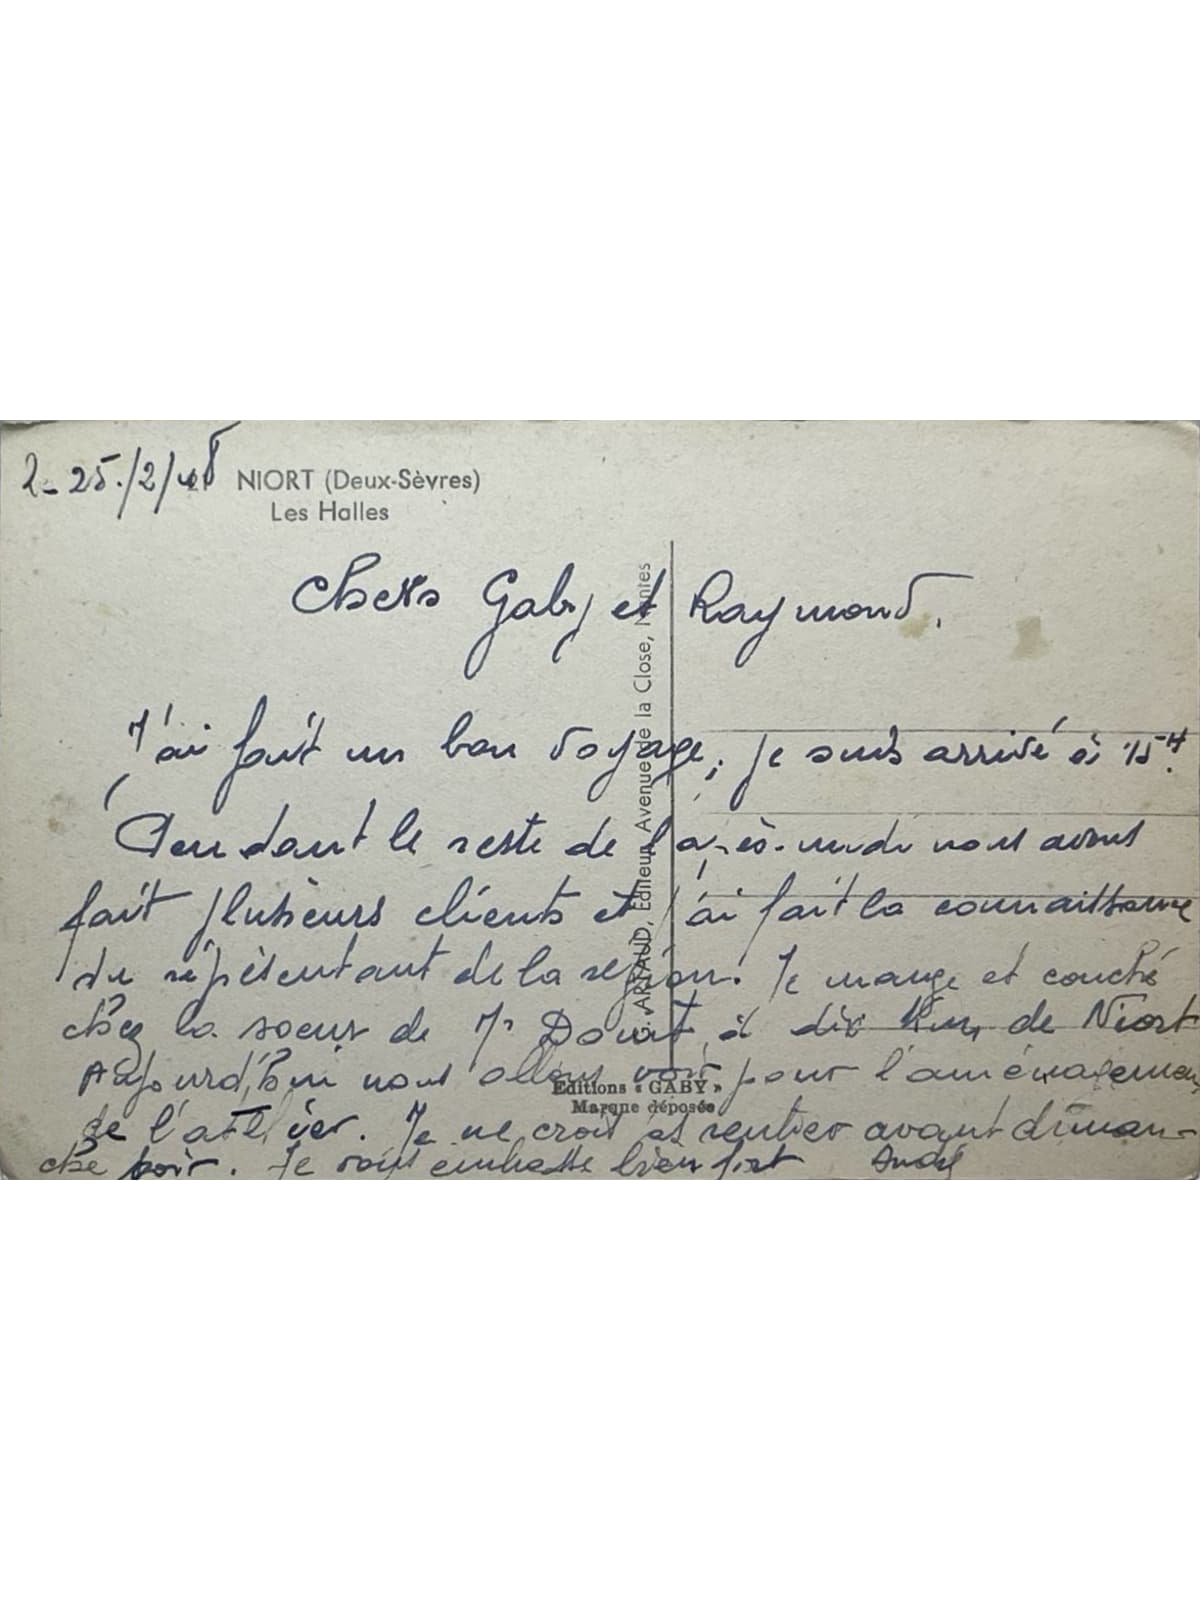 2- 25/2/48 NIORT (Deux-Sèvres)
Les Halles
Chers Gaby et Raymond,
J'ai fait un bon voyage, je suis arrivé à 15H.
Pendant le reste de l'après-midi nous avons
fait plusieurs clients et j'ai fait la connaissance
du représentant de la région. Je mange et couche
chez la soeur de Mr à dix Km, de Niort
Aujourd'hui nous allons voir pour l'aménagement
de l'atelier. Je ne crois pas rentrer avant diman-
che soir. Je vous embrasse bien fort André
G. ARTAUD, Editeur, Avenue de la Close, Nantes
Editions « GABY »
Marque déposée